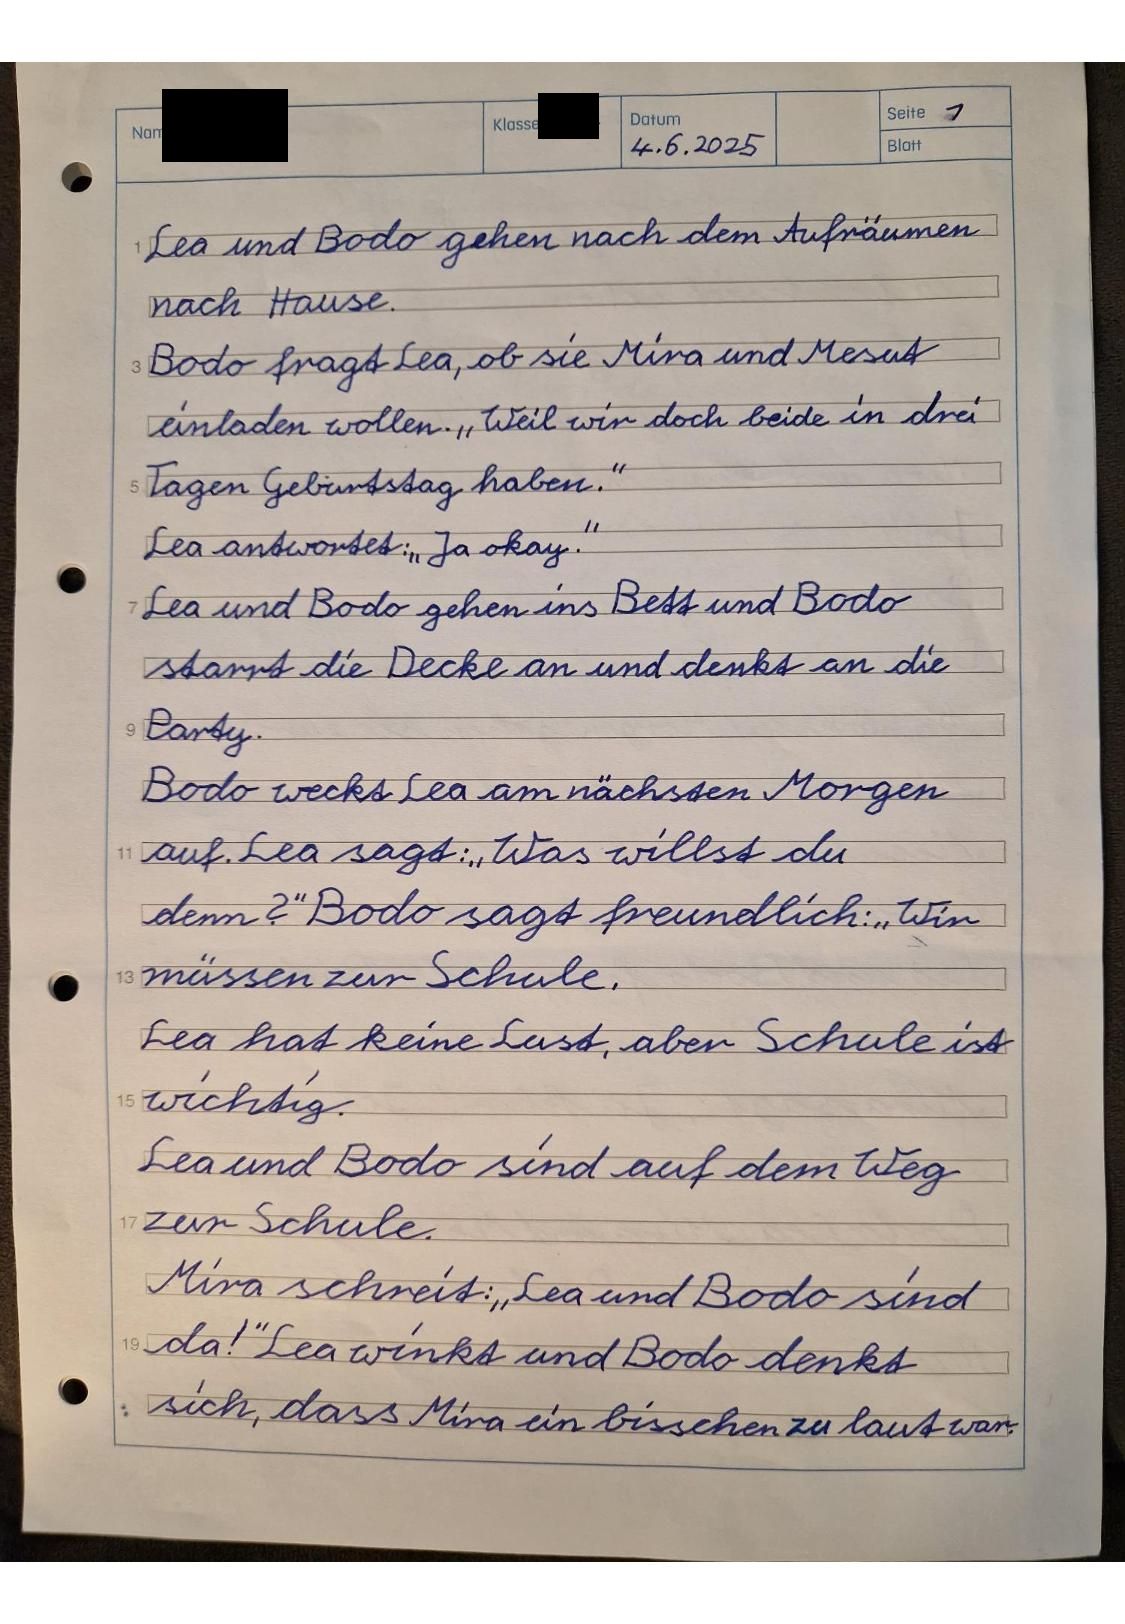 Name Klasse Datum Seite 1
4.6.2025 Blatt
1 Lea und Bodo gehen nach dem Aufräumen
nach Hause.
3 Bodo fragt Lea, ob sie Mira und Mesut
einladen wollen. „Weil wir doch beide in drei
5 Tagen Geburtstag haben."
Lea antwortet: „Ja okay."
7 Lea und Bodo gehen ins Bett und Bodo
starrt die Decke an und denkt an die
9 Party.
Bodo weckt Lea am nächsten Morgen
11 auf. Lea sagt: „Was willst du
denn?" Bodo sagt freundlich: „Wir
13 müssen zur Schule.
Lea hat keine Lust, aber Schule ist
15 wichtig.
Lea und Bodo sind auf dem Weg
17 zur Schule.
Mira schreit: „Lea und Bodo sind
19 da!" Lea winkt und Bodo denkt
sich, dass Mira ein bisschen zu laut war.